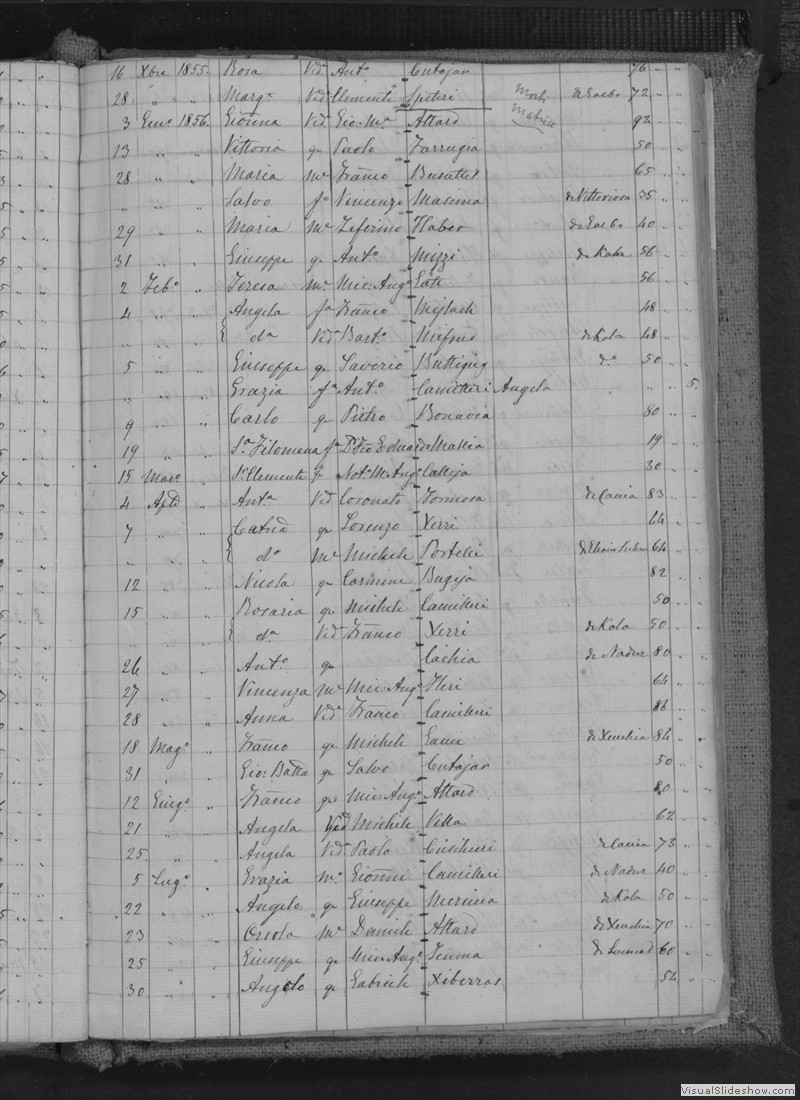 16 Xbre 1855 Rosa Vidᵃ Antº Cutajar 76 " "
28 " " Margª Vidᵃ Clemente Spiteri de Gozbo 72 " "
3 Genº 1856 Gioñna Vidᵃ Gio: Mª Attard 92
13 " " Vittoria q Paolo Farrugia 50
28 " " Maria Mᵉ Franco Busuttil 65
" " " Salvo fº Vincenzo Massima de Vittoriosa 35
29 " " Maria Mᵉ Zeferino Haber de Gozbo 40
31 " " Giuseppe q Antº Mizzi de Kala 56
2 Febº " Teresa Mᵉ Mic: Angº 56
4 " " Angela fª Franco 48
" " " dª Vidᵃ Bartº Mifsud de Kala 48
5 " " Giuseppe q Saverio Buttigieg dº 50 " "
" " " Grazia fª Antº Camilleri Angela " " 5
9 " " Carlo q Pietro Bonavia 80 " "
19 " " Sª Filomena fª Mallia 19 " "
15 Marº " Clemente Notº M. Angº Calleja 30 " "
4 Aple " Antª Vidᵃ Coronato Formosa de Caccia 83 " "
7 " " q Lorenzo Xerri 64
" " " dª Mᵉ Michele Portelli 64
12 " " Nicola q Carmine Bugeja 82
15 " " Rosaria q Michele Camilleri 50
" " " dª Vidᵃ Franco Xerri de Kala 50
26 " " Antº q Cachia de Nadur 80 " "
27 " " Vincenza Mᵉ Mic: Angº 64
28 " " Anna Vidᵃ Franco Camilleri 86
18 Magº " Franco q Michele de Xeuchia 84 " "
31 " " Gio: Batta q Salvo Cutajar 50
12 Giugº " Franco q Mic: Angº Attard 80
21 " " Angela Vidᵃ Michele Vella 62
25 " " Angela Vidᵃ Paolo Cuschieri de Caccia 73
5 Lugº " Grazia Mᵉ Gioñni Camilleri de Nadur 40
22 " " Angelo q Giuseppe de Kala 50
23 " " Orsola Mᵉ Daniele Attard de Xeuchia 70
25 " " Giuseppe q Mic: Angº 60
30 " " Angelo q Gabriele Xiberras 54
VisualSlideshow.com